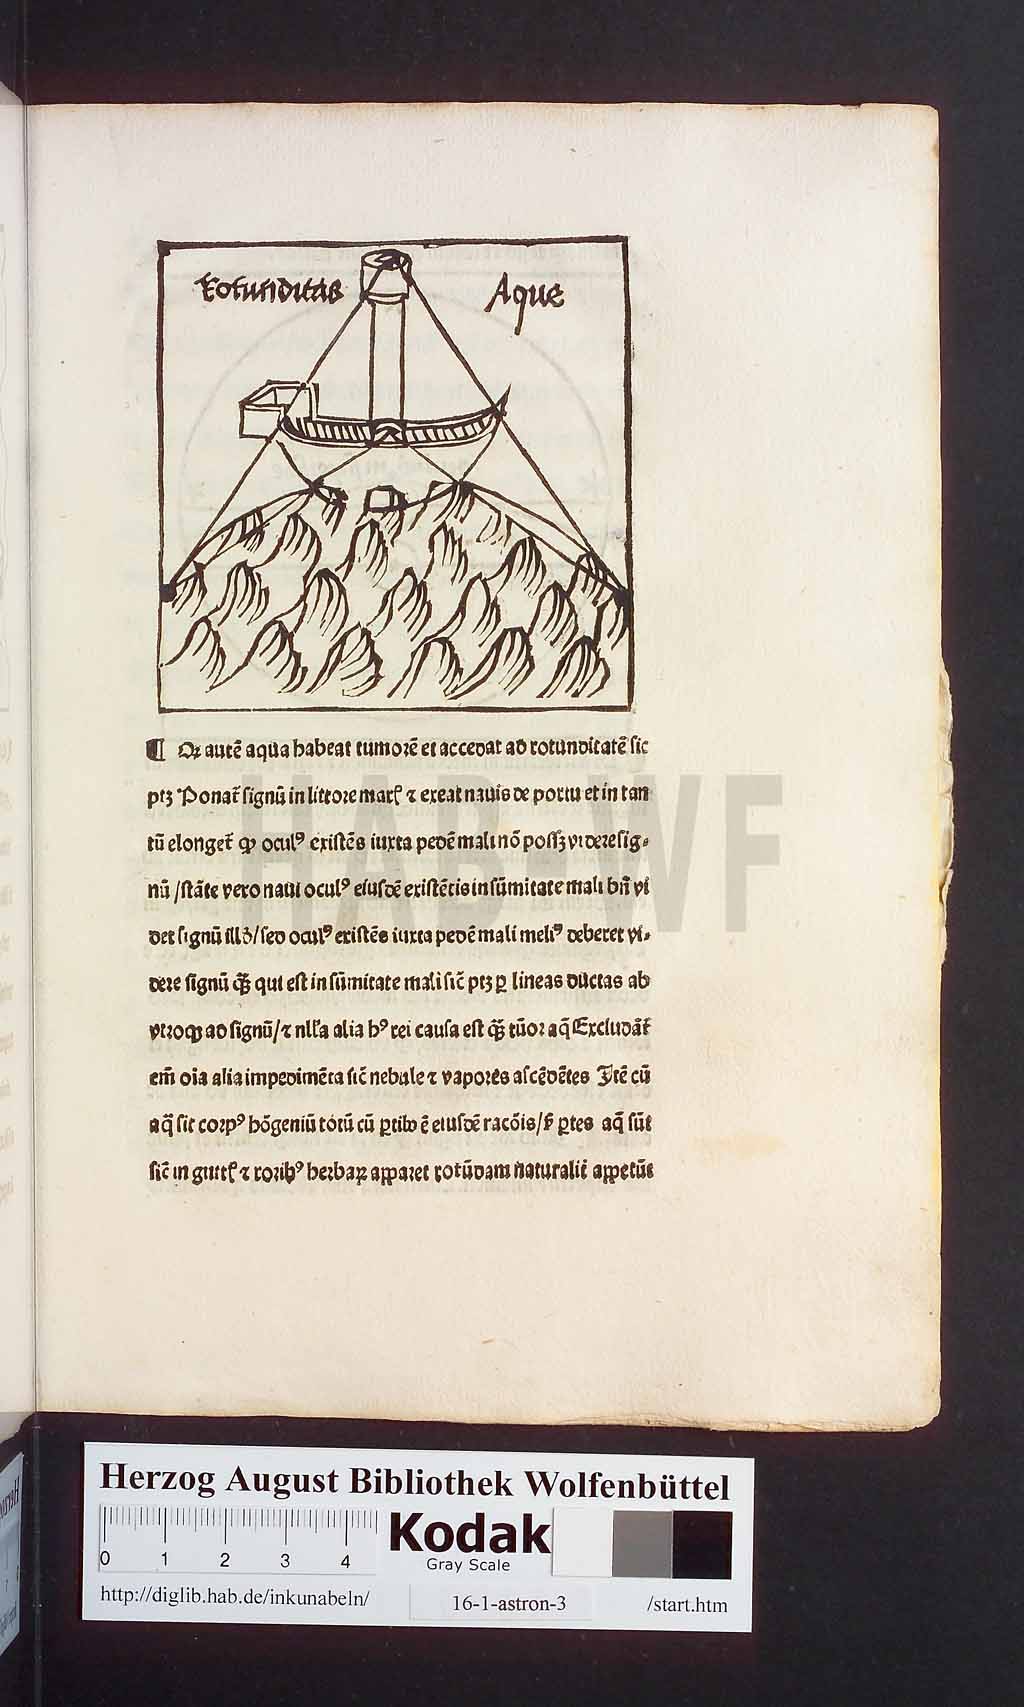 Rotunditas Aque
¶ Qꝛ autē aqua habeat tumoꝛē et accedat ad rotunditatē sic
ptꝫ Ponat̄ signū in littoꝛe marꝭ ⁊ exeat nauis de poꝛtu et in tan
tū elonget̄ ꝙ oculꝰ existēs iuxta pedē mali nō possꝫ videre sig⸗
nū /stāte vero naui oculꝰ eiusdē existētis in sūmitate mali bn̄ vi
det signū illd̄/sed oculꝰ existēs iuxta pedē mali meliꝰ deberet vi⸗
dere signū ꝙ̄ qui est in sūmitate mali sic̄ ptꝫ ꝑ lineas ductas ab
vtroqꝫ ad signū/⁊ nll̄a alia hꝰ rei causa est ꝙ̄ tūoꝛ aq̄ Excludāt̄
em̄ oīa alia impedimēta sic̄ nebule ⁊ vapoꝛes ascēdētes Itē cū
aq̄ sit coꝛpꝰ hōgeniū totū cū ꝑtibꝰ ē eiusdē racōis/ ꝑtes aq̄ sūt
sic̄ in guttꝭ ⁊ roꝛibꝰ herbaꝝ apparet rotūdam naturalit̄ appetūt
HAB-WF
Herzog August Bibliothek Wolfenbüttel
0 1 2 3 4
Kodak
Gray Scale
http://diglib.hab.de/inkunabeln/ 16-1-astron-3 /start.htm